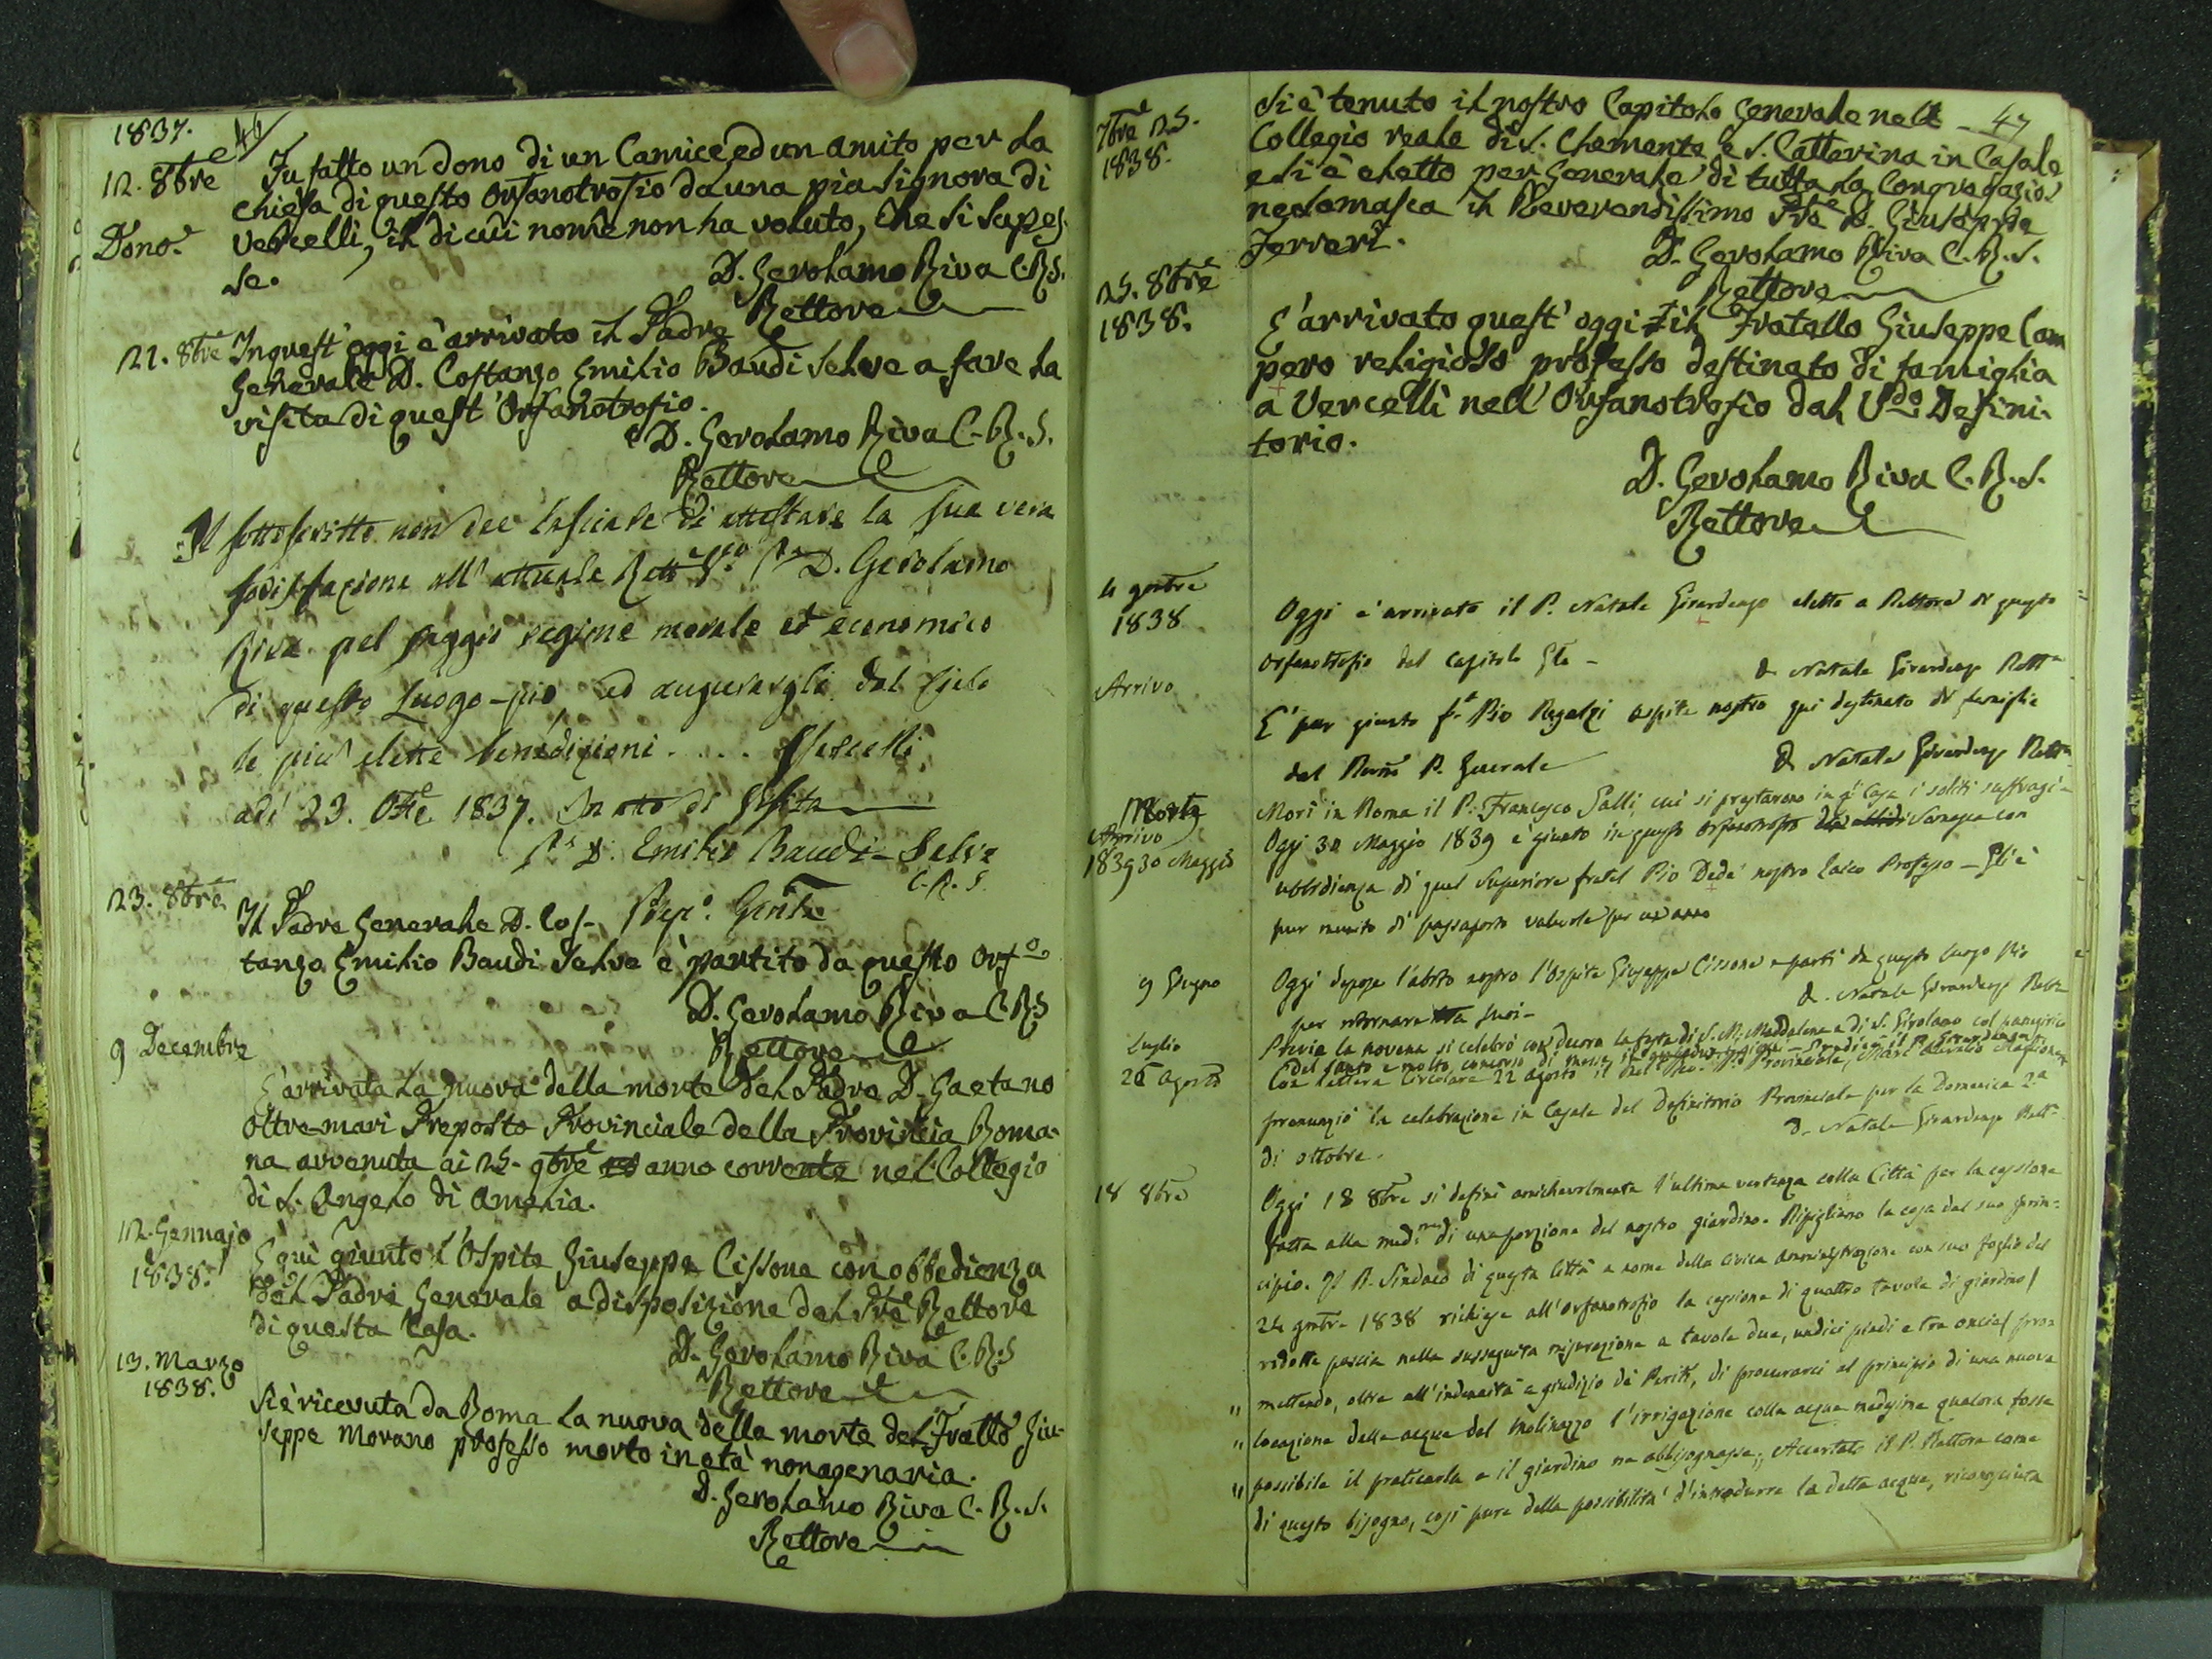 1837.
46
12. 8bre Fu fatto un dono di un Camice, ed un amito per la
chiesa di questo Orfanotrofio da una pia Signora di
Dono. Vercelli, il di cui nome non ha voluto, che si sapes-
se.
D. Gerolamo Riva C. R. S.
Rettore
21. 8bre In quest'oggi è arrivato il Padre
Generale D. Costanzo Emilio Baudi Selve a fare la
visita di quest'Orfanotrofio.
D. Gerolamo Riva C. R. S.
Rettore
Il sottoscritto non dee lasciare di attestare la sua vera
sodisfazione all'attuale Rett.e D. Gerolamo
Riva pel saggio regime morale ed economico
di questo Luogo-pio, ed augurargli dal Cielo
le più elette benedizioni. . . . Vercelli
adì 23. Otte 1837. In atto di Visita
D. Emilio Baudi-Selve
C. R. S.
Prep.o Gen.le
23. 8bre Il Padre Generale D. Cos-
tanzo Emilio Baudi Selve è partito da questo Orf.o
D. Gerolamo Riva C. R. S
Rettore
9 Decembre
È arrivata la nuova della morte del Padre D. Gaetano
Oltremari Preposto Provinciale della Provincia Roma-
na avvenuta ai 25. 9bre anno corrente nel Collegio
di S. Angelo di Amelia.
12. Gennajo
1838. È quì giunto l'Ospite Giuseppe Cissone con obbedienza
del Padre Generale a disposizione del Pre Rettore
di questa Casa.
D. Gerolamo Riva C. R. S
Rettore
13. Marzo
1838.
Si è ricevuta da Roma la nuova della morte del Fratello Giu-
seppe Morano professo morto in età nonagenaria.
D. Gerolamo Riva C. R. S.
Rettore
47
7bre 25.
1838.
Si è tenuto il nostro Capitolo Generale nel
Collegio reale di S. Clemente e S. Catterina in Casale
e si è eletto per Generale di tutta la Congregazio-
ne Somasca il Reverendissimo Pre D. Giuseppe
Ferreri.
D. Gerolamo Riva C. R. S.
Rettore
25. 8bre
1838.
È arrivato quest'oggi il Fratello Giuseppe Cam
pero religioso professo destinato di famiglia
a Vercelli nell'Orfanotrofio dal Vdo Defini-
torio.
D. Gerolamo Riva C. R. S.
Rettore
4 9mbre
1838
Oggi è arrivato il P. Natale Girardengo eletto a Rettore di questo
Orfanotrofio dal Capitolo Gle -
D. Natale Girardengo Rett.e
Arrivo
È pur giunto Pio Regalzi ospite nostro qui destinato di famiglia
dal Rmo P. Generale
D. Natale Girardengo Rett.e
Morte Morì in Roma il P. Francesco Galli, cui si prestarono in qa Casa i soliti suffragi -
Arrivo
1839 30 Maggio
Oggi 30 Maggio 1839 è giunto in questo Orfanotrofio con
ubbidienza di quel Superiore fratel Pio Dedè nostro Laico Professo - Egli è
pur munito di passaporto valevole per un anno
9 Giugno Oggi depose l'abito nostro l'Ospite Giuseppe Cissone e partì da questo luogo Pio
per ritornare ai suoi -
D. Natale Girardengo Rett.e
Luglio Previa la novena si celebrò con decoro la festa di S. M. Maddalena e di S. Girolamo col panegirico
del Santo e molto concorso di
26 Agosto Con lettera Circolare 22 agosto il Provinciale,
prenunziò la celebrazione in Casale del Definitorio Provinciale per la Domenica 2.a
di ottobre.
D. Natale Girardengo Rett.e
18 8bre Oggi 18 8bre si definì amichevolmente l'ultima vertenza colla Città per la cessione
fatta alla medma di una porzione del nostro giardino. Ripigliamo la cosa dal suo prin-
cipio. Il R. Sindaco di questa Città a nome della Civica Amministrazione con suo foglio del
24 9mbre 1838 richiese all'Orfanotrofio la cessione di quattro tavole di giardino (
ridotte poscia nella susseguita misurazione a tavole due, undici piedi e tre oncie) pro-
" mettendo, oltre all'indennità a giudizio de' Periti, di procurarci al principio di una nuova
" locazione delle acque del Molinazzo l'irrigazione colla acqua medesima qualora fosse
" possibile il praticarla e il giardino ne abbisognasse„ Accertato il P. Rettore come
di questo bisogno, così pure della possibilità d'introdurre la detta acqua, riconosciuta